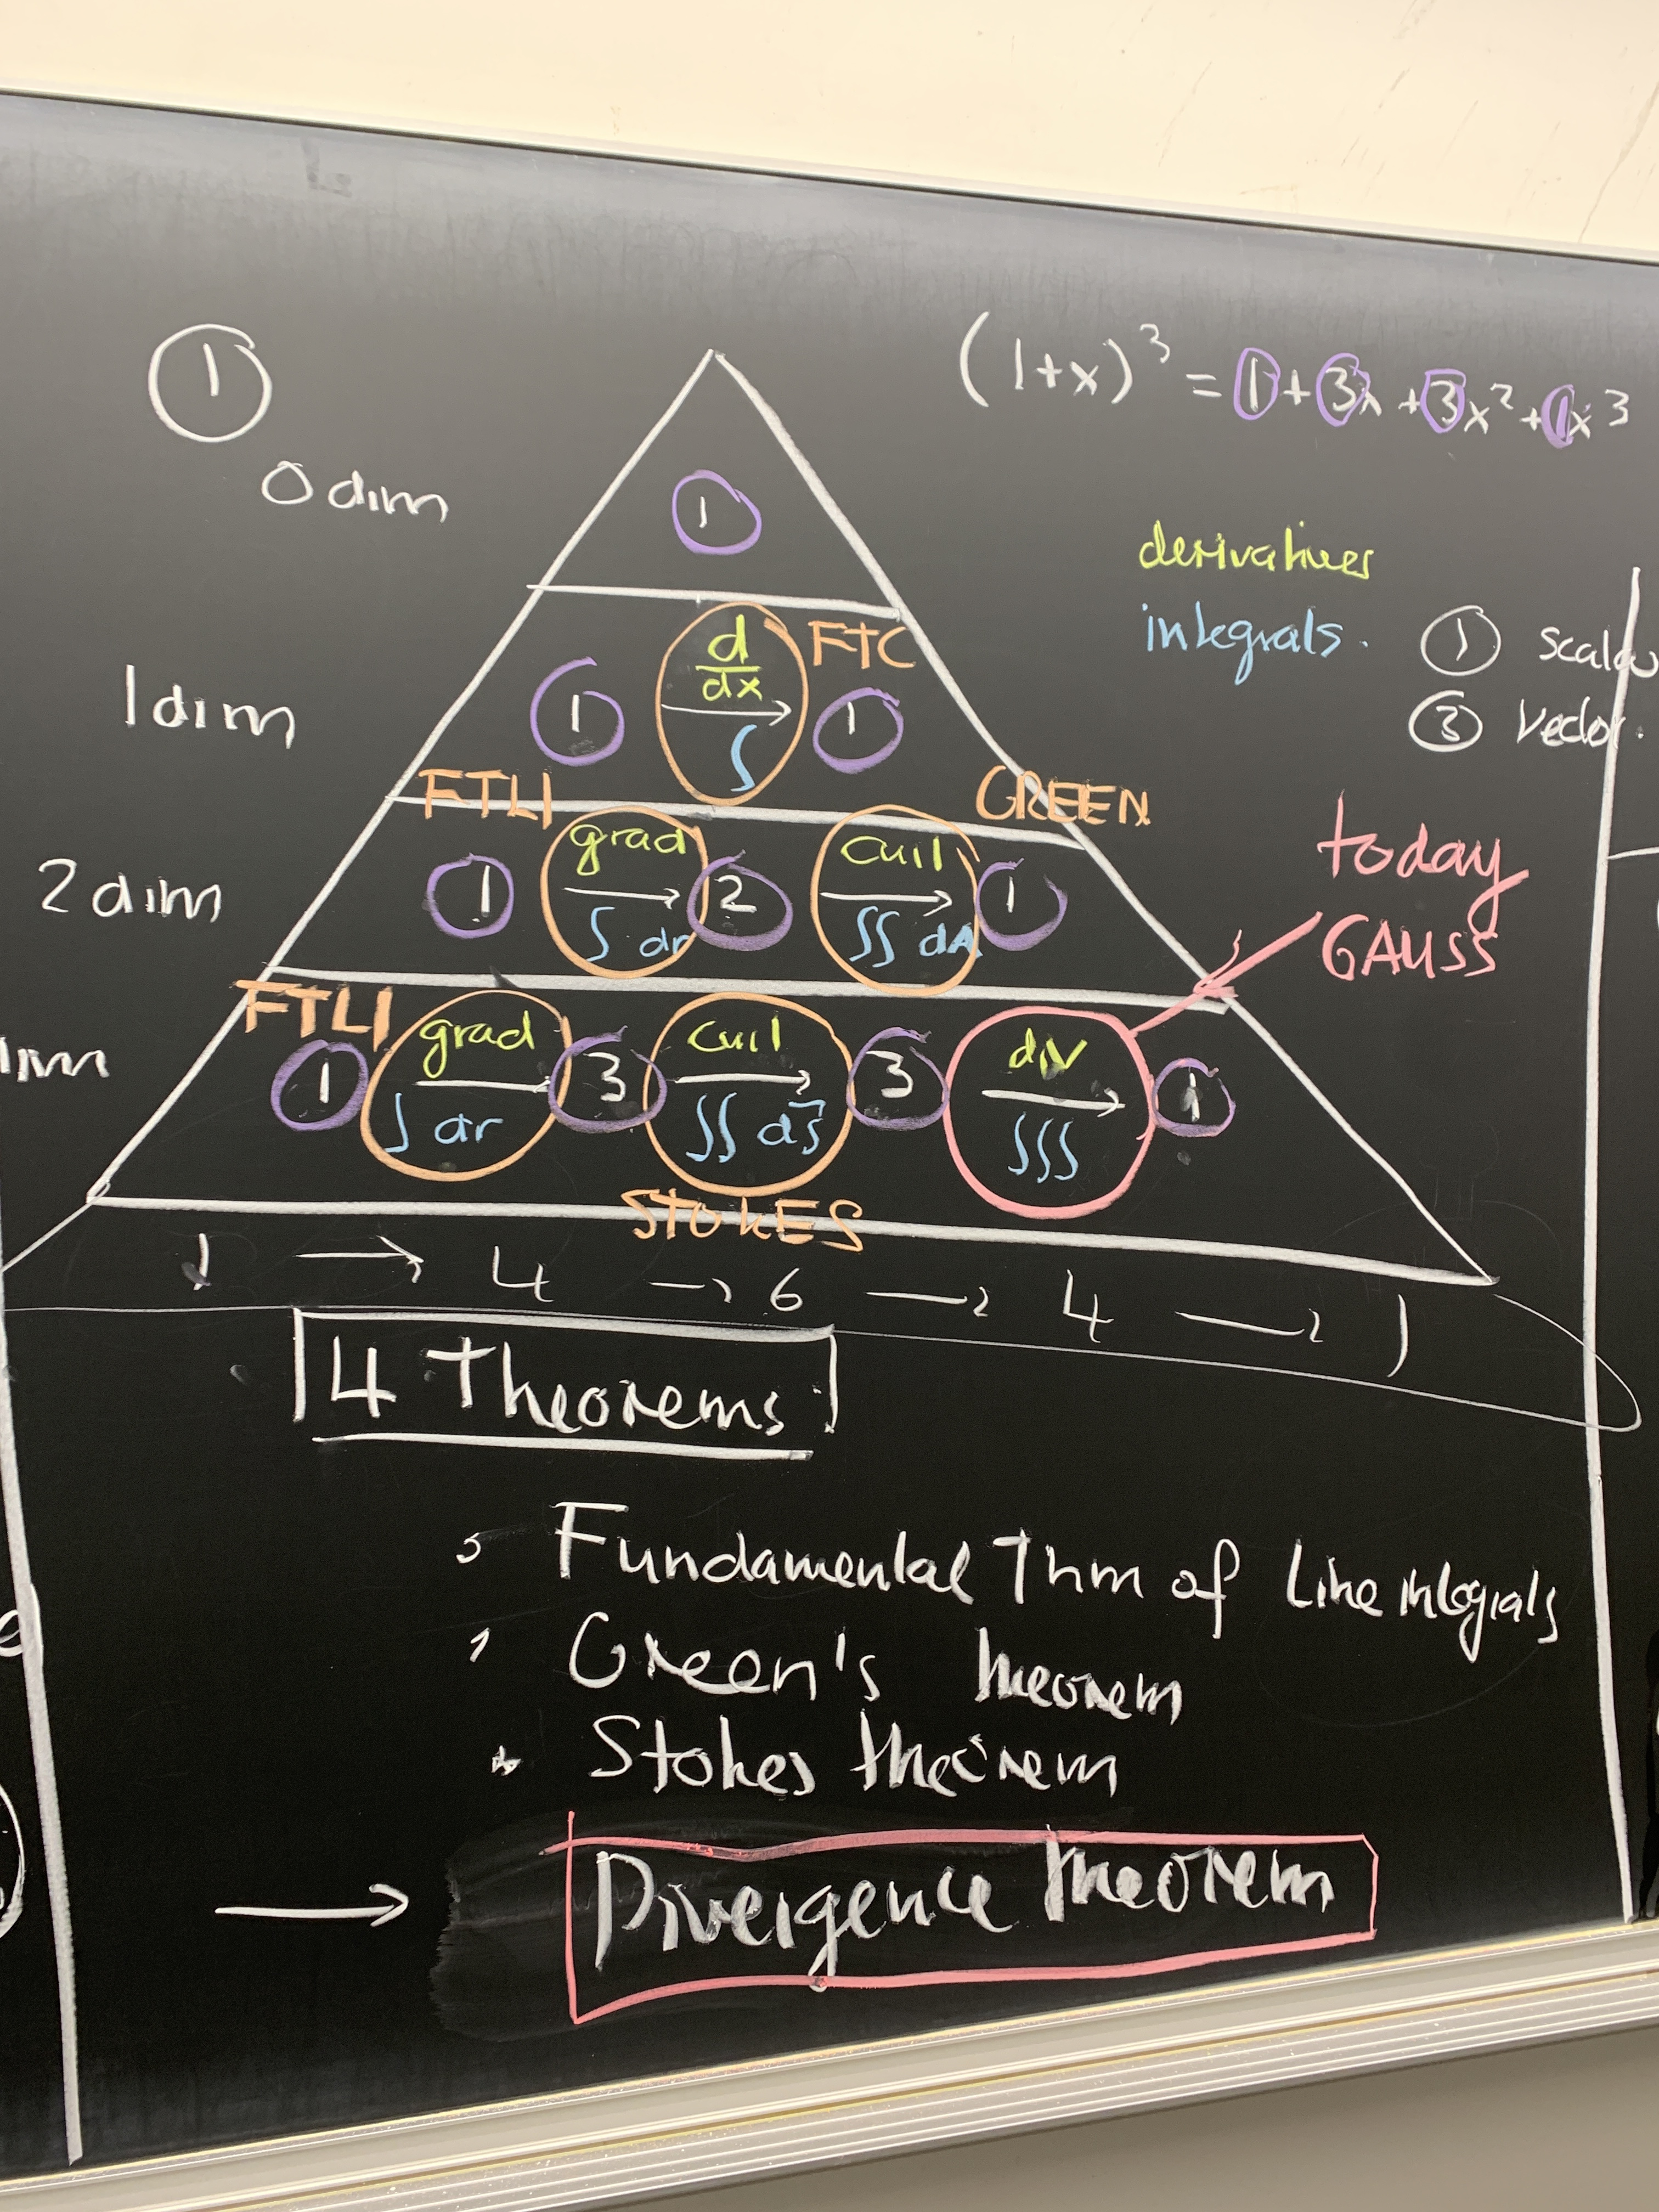 ①
(1+x)³ = 1 + 3x + 3x² + 1x³
0 dim
1
derivatives
integrals.
① scalar
③ vector.
1 dim
1 d/dx → ∫ 1
FTC
FTLI
GREEN
2 dim
1 grad → ∫ dr 2 curl → ∬ dA 1
today
GAUSS
FTLI
1 grad → ∫ dr 3 curl → ∬ dS⃗ 3 div → ∭ 1
STOKES
1 → 4 → 6 → 4 → 1
4 Theorems
Fundamental Thm of Line integrals
Green's theorem
Stokes theorem
→ Divergence theorem